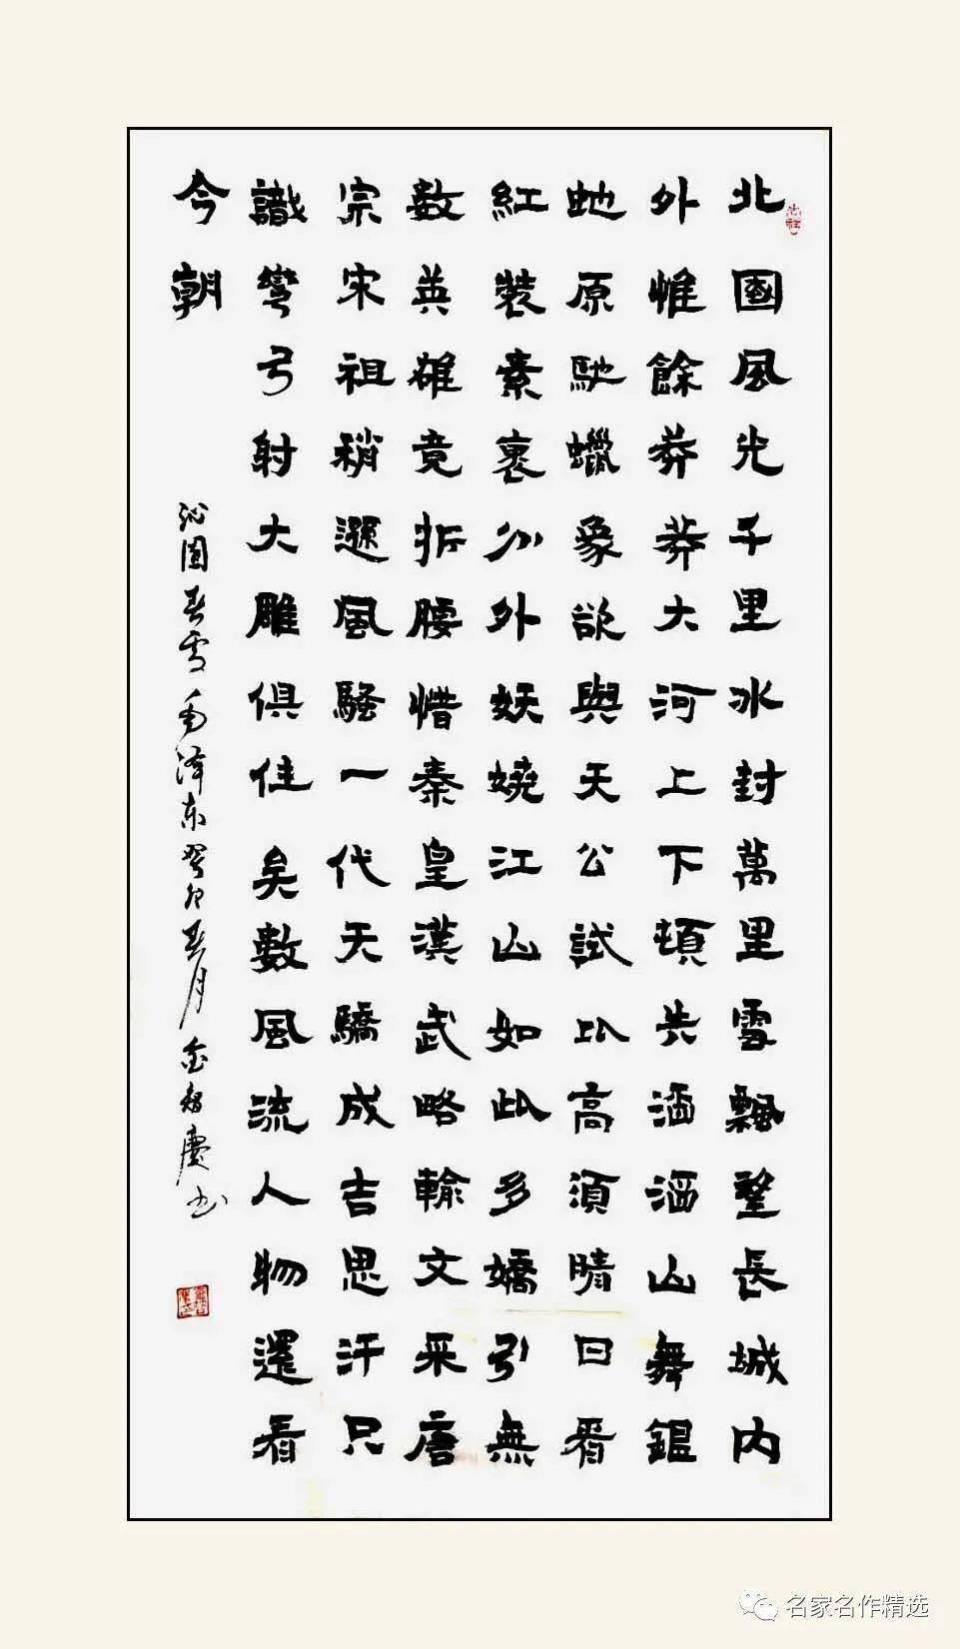 北國風光千里冰封萬里雪飄望長城內
外惟餘莽莽大河上下頓失滔滔山舞銀
虵原馳蠟象欲與天公試比高須晴日看
紅裝素裹分外妖嬈江山如此多嬌引無
數英雄竟折腰惜秦皇漢武略輸文采唐
宗宋祖稍遜風騷一代天驕成吉思汗只
識彎弓射大雕俱往矣數風流人物還看
今朝
沁園春雪毛泽东癸卯春月金智慶书
名家名作精选